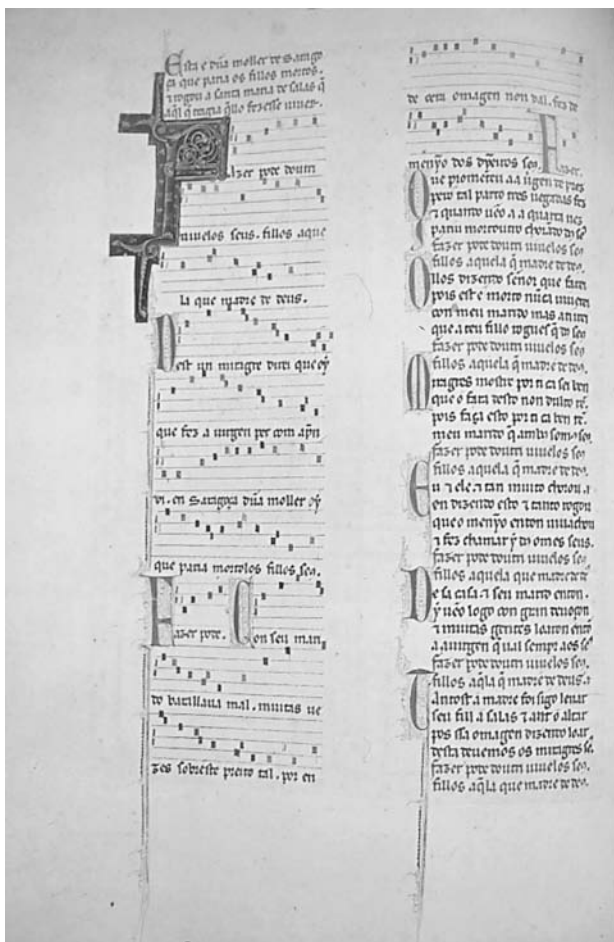 Esta e dũa moller de Saragoça
que paria os fillos mortos.
⁊ rogou a santa maria de salas q̃
azer pode doutri
uiuelos seus. fillos aque
la que madre de deus.
D
est un miragre direi que oý
que fez a uirgen per com apñ
di. en Saragoça dũa moller oý
que paria mortolos fillos seu.
Fazer pode. Con seu mari
do baratllaua mal. muitas ue
zes sobreste preito tal. por en
de cera omagen non ual. fez de
menỹo dos dỹeiros seu. Fazer.
Que prometeu aa uirgen de prez
pero tal parto tres uegadas fez
⁊ quando uẽo a a quarta uez
pariu morto
fazer pode doutri uiuelos seu
fillos aquela q̃ madre de deu.
dizendo señor que farei
pois est e morto
con meu marido mas
que a teu fillo rogues q̃
fazer pode doutri uiuelos seu
fillos aquela q̃ madre de deu.
Miragres mostre por ti ca sei ben
que o fara desto non dulto rẽ.
pois faça esto por ti ca ben tẽ.
meu marido q̃ ambos somos seu.
fazer pode doutri uiuelos seu
fillos aquela q̃ madre de deu.
Eu ⁊ ele. ⁊ tan muito chorou.
en dizendo esto ⁊ tanto rogou
que o menỹo enton
⁊ fez chamar ý do omes seus.
fazer pode doutri uiuelos seu
fillos aquela que madre de
De sa casa. ⁊ seu marid enton.
ý uẽo logo con gran deuoçon
⁊ muitas gentes loaron entõ
a uirgen q̃ ual sempr aos se
fazer pode doutri uiuelos seu
fillos aq̃la q̃ madre de deus.
Tantost a madre foi sigo leuar
seu fill a salas ⁊ ant o altar
pos ssa omagen dizendo loar
desta deuemos os miragres se.
fazer pode doutri uiuelos seu
fillos aq̃la que madre de deu.